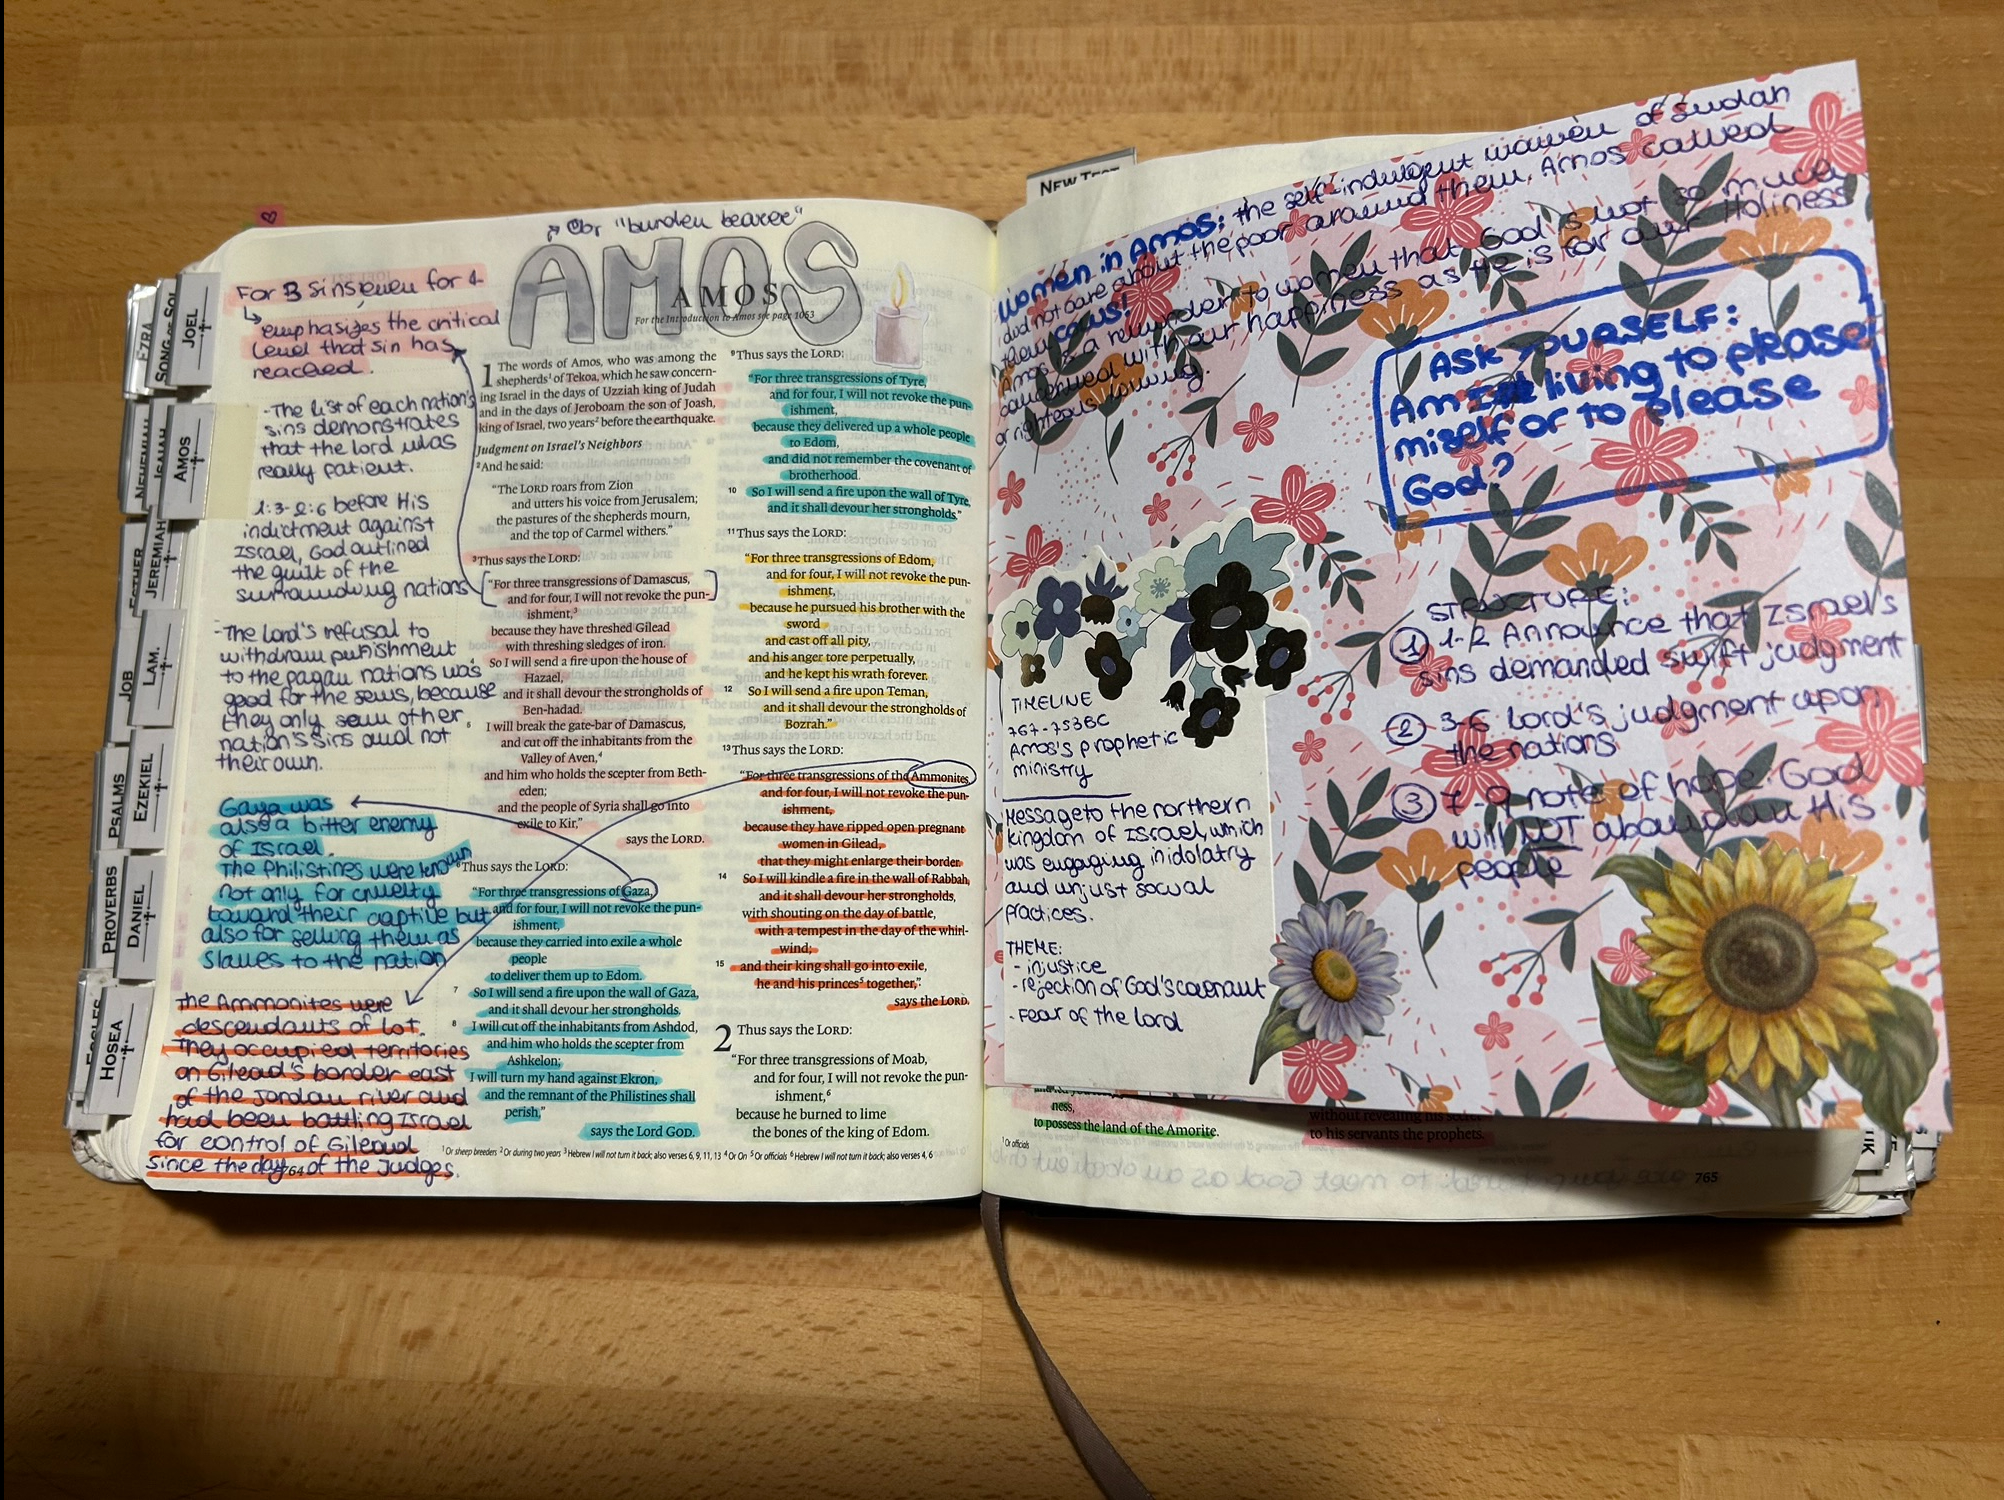 or "burden bearer"
AMOS
AMOS
For the Introduction to Amos see page 1063
For 3 sins even for 4
emphasizes the critical
level that sin has
reached.
-The list of each nation's
sins demonstrates
that the lord was
really patient.
1:3-2:6 before His
indictment against
Israel, God outlined
the guilt of the
surrounding nations
-The Lord's refusal to
withdraw punishment
to the pagan nations was
good for the Jews, because
they only saw other
nation's sins and not
their own.
Gaza was
also a bitter enemy
of Israel.
The Philistines were known
not only for cruelty
toward their captive but
also for selling them as
slaves to the nation
The Ammonites were
descendants of Lot.
They occupied territories
on Gilead's border east
of the Jordan river and
had been battling Israel
for control of Gilead
since the day of the Judges.
764
1 The words of Amos, who was among the
shepherds¹ of Tekoa, which he saw concern-
ing Israel in the days of Uzziah king of Judah
and in the days of Jeroboam the son of Joash,
king of Israel, two years² before the earthquake.
Judgment on Israel's Neighbors
²And he said:
"The LORD roars from Zion
and utters his voice from Jerusalem;
the pastures of the shepherds mourn,
and the top of Carmel withers."
³Thus says the LORD:
"For three transgressions of Damascus,
and for four, I will not revoke the pun-
ishment,³
because they have threshed Gilead
with threshing sledges of iron.
So I will send a fire upon the house of
Hazael,
and it shall devour the strongholds of
Ben-hadad.
5 I will break the gate-bar of Damascus,
and cut off the inhabitants from the
Valley of Aven,⁴
and him who holds the scepter from Beth-
eden;
and the people of Syria shall go into
exile to Kir,"
says the LORD.
⁶Thus says the LORD:
"For three transgressions of Gaza,
and for four, I will not revoke the pun-
ishment,
because they carried into exile a whole
people
to deliver them up to Edom.
7 So I will send a fire upon the wall of Gaza,
and it shall devour her strongholds.
8 I will cut off the inhabitants from Ashdod,
and him who holds the scepter from
Ashkelon;
I will turn my hand against Ekron,
and the remnant of the Philistines shall
perish,"
says the Lord GOD.
⁹Thus says the LORD:
"For three transgressions of Tyre,
and for four, I will not revoke the pun-
ishment,
because they delivered up a whole people
to Edom,
and did not remember the covenant of
brotherhood.
10 So I will send a fire upon the wall of Tyre,
and it shall devour her strongholds."
¹¹Thus says the LORD:
"For three transgressions of Edom,
and for four, I will not revoke the pun-
ishment,
because he pursued his brother with the
sword
and cast off all pity,
and his anger tore perpetually,
and he kept his wrath forever.
12 So I will send a fire upon Teman,
and it shall devour the strongholds of
Bozrah."
¹³Thus says the LORD:
"For three transgressions of the Ammonites,
and for four, I will not revoke the pun-
ishment,
because they have ripped open pregnant
women in Gilead,
that they might enlarge their border.
14 So I will kindle a fire in the wall of Rabbah,
and it shall devour her strongholds,
with shouting on the day of battle,
with a tempest in the day of the whirl-
wind;
15 and their king shall go into exile,
he and his princes⁵ together,"
says the LORD.
2 Thus says the LORD:
"For three transgressions of Moab,
and for four, I will not revoke the pun-
ishment,⁶
because he burned to lime
the bones of the king of Edom.
¹ Or sheep breeders ² Or during two years ³ Hebrew I will not turn it back; also verses 6, 9, 11, 13 ⁴ Or On ⁵ Or officials ⁶ Hebrew I will not turn it back; also verses 4, 6
EZRA
SONG OF SOL
JOEL
NEHEMIAH
ISAIAH
AMOS
ESTHER
JEREMIAH
JOB
LAM.
PSALMS
EZEKIEL
PROVERBS
DANIEL
ECCLES
HOSEA
NEW TEST
Women in Amos: the self-indulgent women of Sudah
did not care about the poor around them. Amos called
them cows!
Amos is a reminder to women that God is not so much
concerned with our happiness as He is for our Holiness
or righteous living.
ASK YOURSELF:
Am I living to please
miself or to please
God?
TIMELINE
767-753BC
Amos's prophetic
ministry
Message to the northern
kingdom of Israel, which
was engaging in idolatry
and unjust social
practices.
THEME:
- injustice
- rejection of God's covenant
- Fear of the lord
STRUCTURE:
① 1-2 Announce that Israel's
sins demanded swift judgment
② 3-6 Lord's judgment upon
the nations
③ 7-9 note of hope: God
will NOT abandon His
people
ness,
to possess the land of the Amorite.
without revealing his secret
to his servants the prophets.
¹ Or officials
765